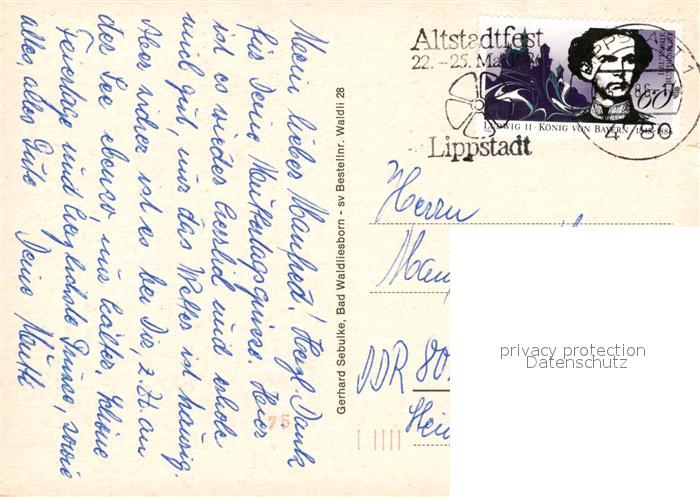 Mein lieber Manfred! Hrzl. Dank
für Deine Muttertagsgrüsse. Hier
ist es wieder herrlich und erhole
mich gut, nur das Wetter ist häßig.
Aber sicher ist es bei Dir, z. Zt. an
der See ebenso, nur kälter, schöne
Feiertage und herzlichste Grüsse, sowie
alles, alles Gute
Deine Mutti
Gerhard Sebulke, Bad Waldliesborn - sv Bestellnr. Waldli 28
Altstadtfest
22. - 25. Mai
Lippstadt
LUDWIG II · KÖNIG VON BAYERN · 1845-1886
DEUTSCHE
BUNDESPOST
80
LIPPSTADT
4780
Herrn
Manf
DDR 80
Hein
75
privacy protection
Datenschutz